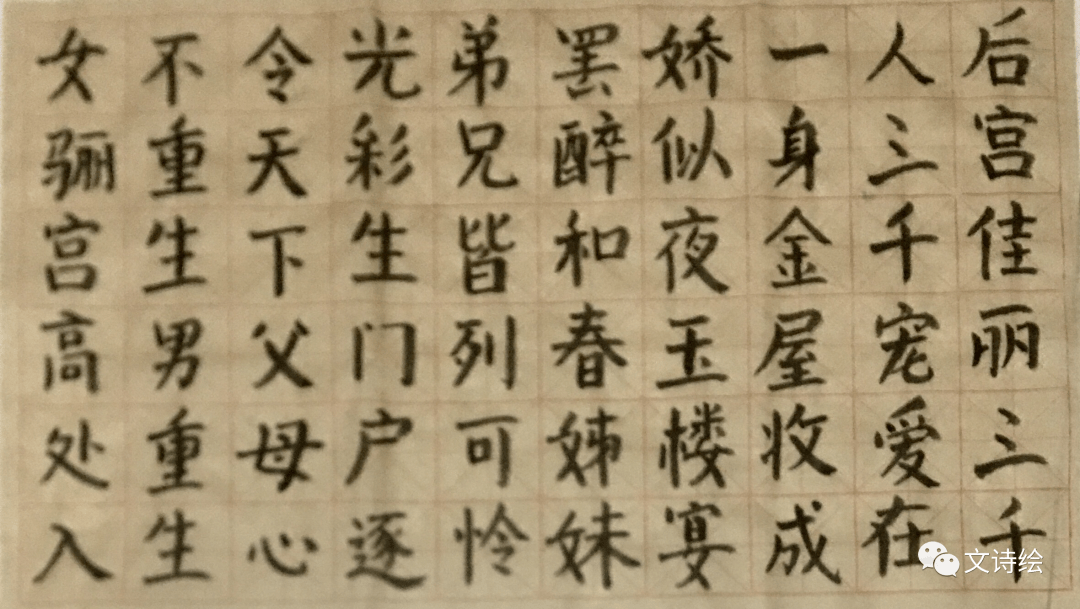 后宫佳丽三千
人三千宠爱在
一身金屋收成
娇似夜玉楼宴
罢醉和春姊妹
弟兄皆列可怜
光彩生门户逐
令天下父母心
不重生男重生
女骊宫高处入
文诗绘